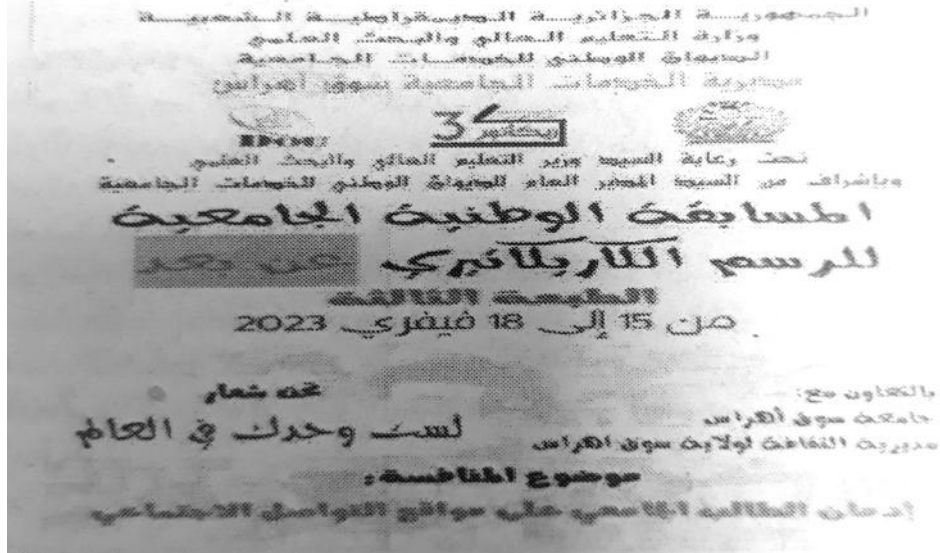 الجمهوريـــة الجزائريـــة الديمقراطيـة الشعبيـــة
وزارة التعليم العالي والبحث العلمي
الديوان الوطني للخدمـــات الجـامعية
مديرية الخدمات الجامعية سوق أهراس
ريكاتور 3
تحت رعاية السيد وزير التعليم العالي والبحث العلمي
وبإشراف من السيد المدير العام للديوان الوطني للخدمات الجامعية
المسابقة الوطنية الجامعية
للرسم الكاريكاتيري عن بعد
الطبعة الثالثة
من 15 إلى 18 فيفري 2023
بالتعاون مع:
جامعة سوق أهراس
مديرية الثقافة لولاية سوق أهراس
تحت شعار
لست وحدك في العالم
موضوع المنافسة:
إدمان الطالب الجامعي على مواقع التواصل الاجتماعي